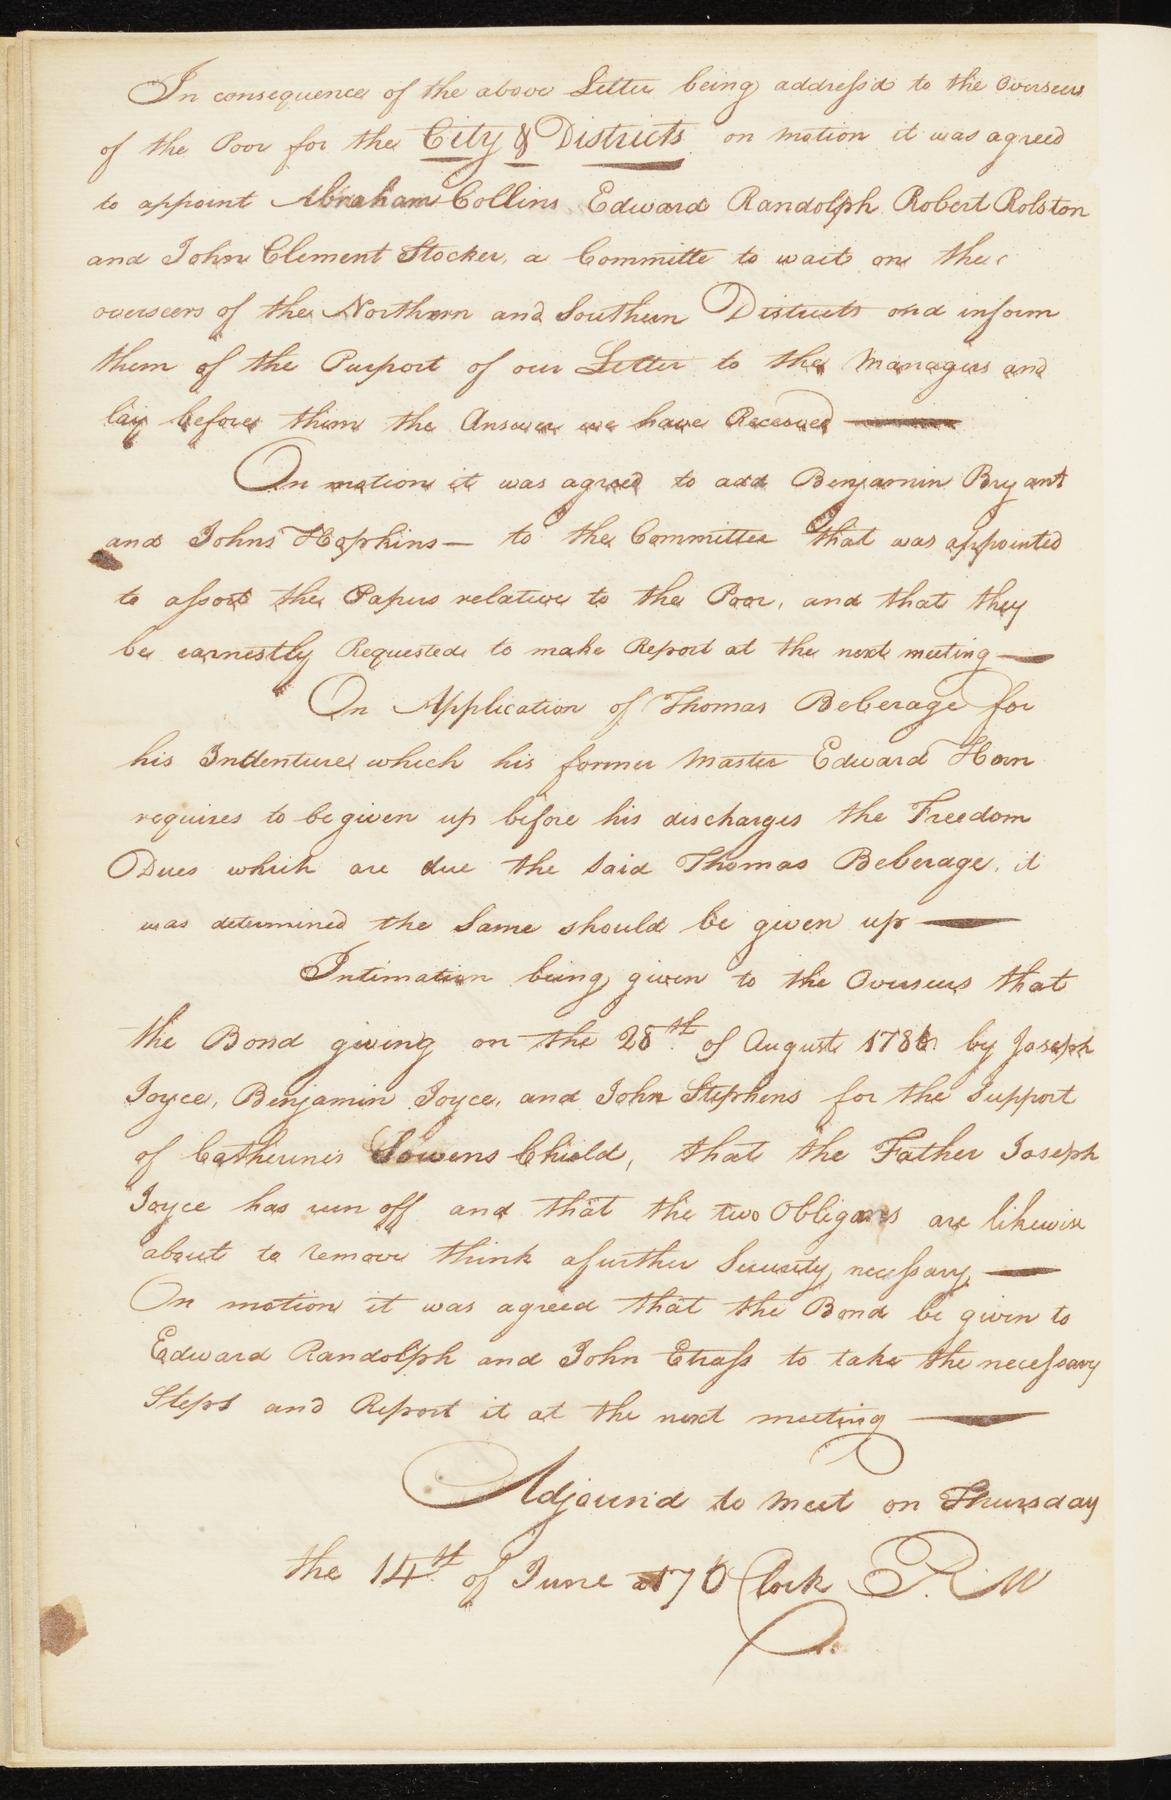 In consequence of the above Letter being address'd to the Overseers
of the Poor for the City & Districts on motion it was agreed
to appoint Abraham Collins Edward Randolph Robert Rolston
and John Clement Stocker, a Committe to wait on the
overseers of the Northern and Southern Districts and inform
them of the Purport of our Letter to the Managers and
lay before them the Answer we have Received —
On motion it was agreed to add Benjamin Bryant
and Johns Hopkins — to the Committee that was appointed
to assort the Papers relative to the Poor, and that they
be earnestly Requested to make Report at the next meeting —
On Application of Thomas Beberage for
his Indenture which his former Master Edward Horn
requires to be given up before his discharges the Freedom
Dues which are due the said Thomas Beberage, it
was determined the Same should be given up —
Intimation being given to the Overseers that
the Bond giving on the 28th of August 1786 by Joseph
Joyce, Benjamin Joyce, and John Stephens for the Support
of Catherines Sowens Chield, that the Father Joseph
Joyce has run off and that the two Obligors are likewise
about to remove think a further Security necessary —
On motion it was agreed that the Bond be given to
Edward Randolph and John to take the necessary
Steps and Report it at the next meeting —
Adjourn'd to meet on Thursday
the 14th of June at 7 O Clock P. M